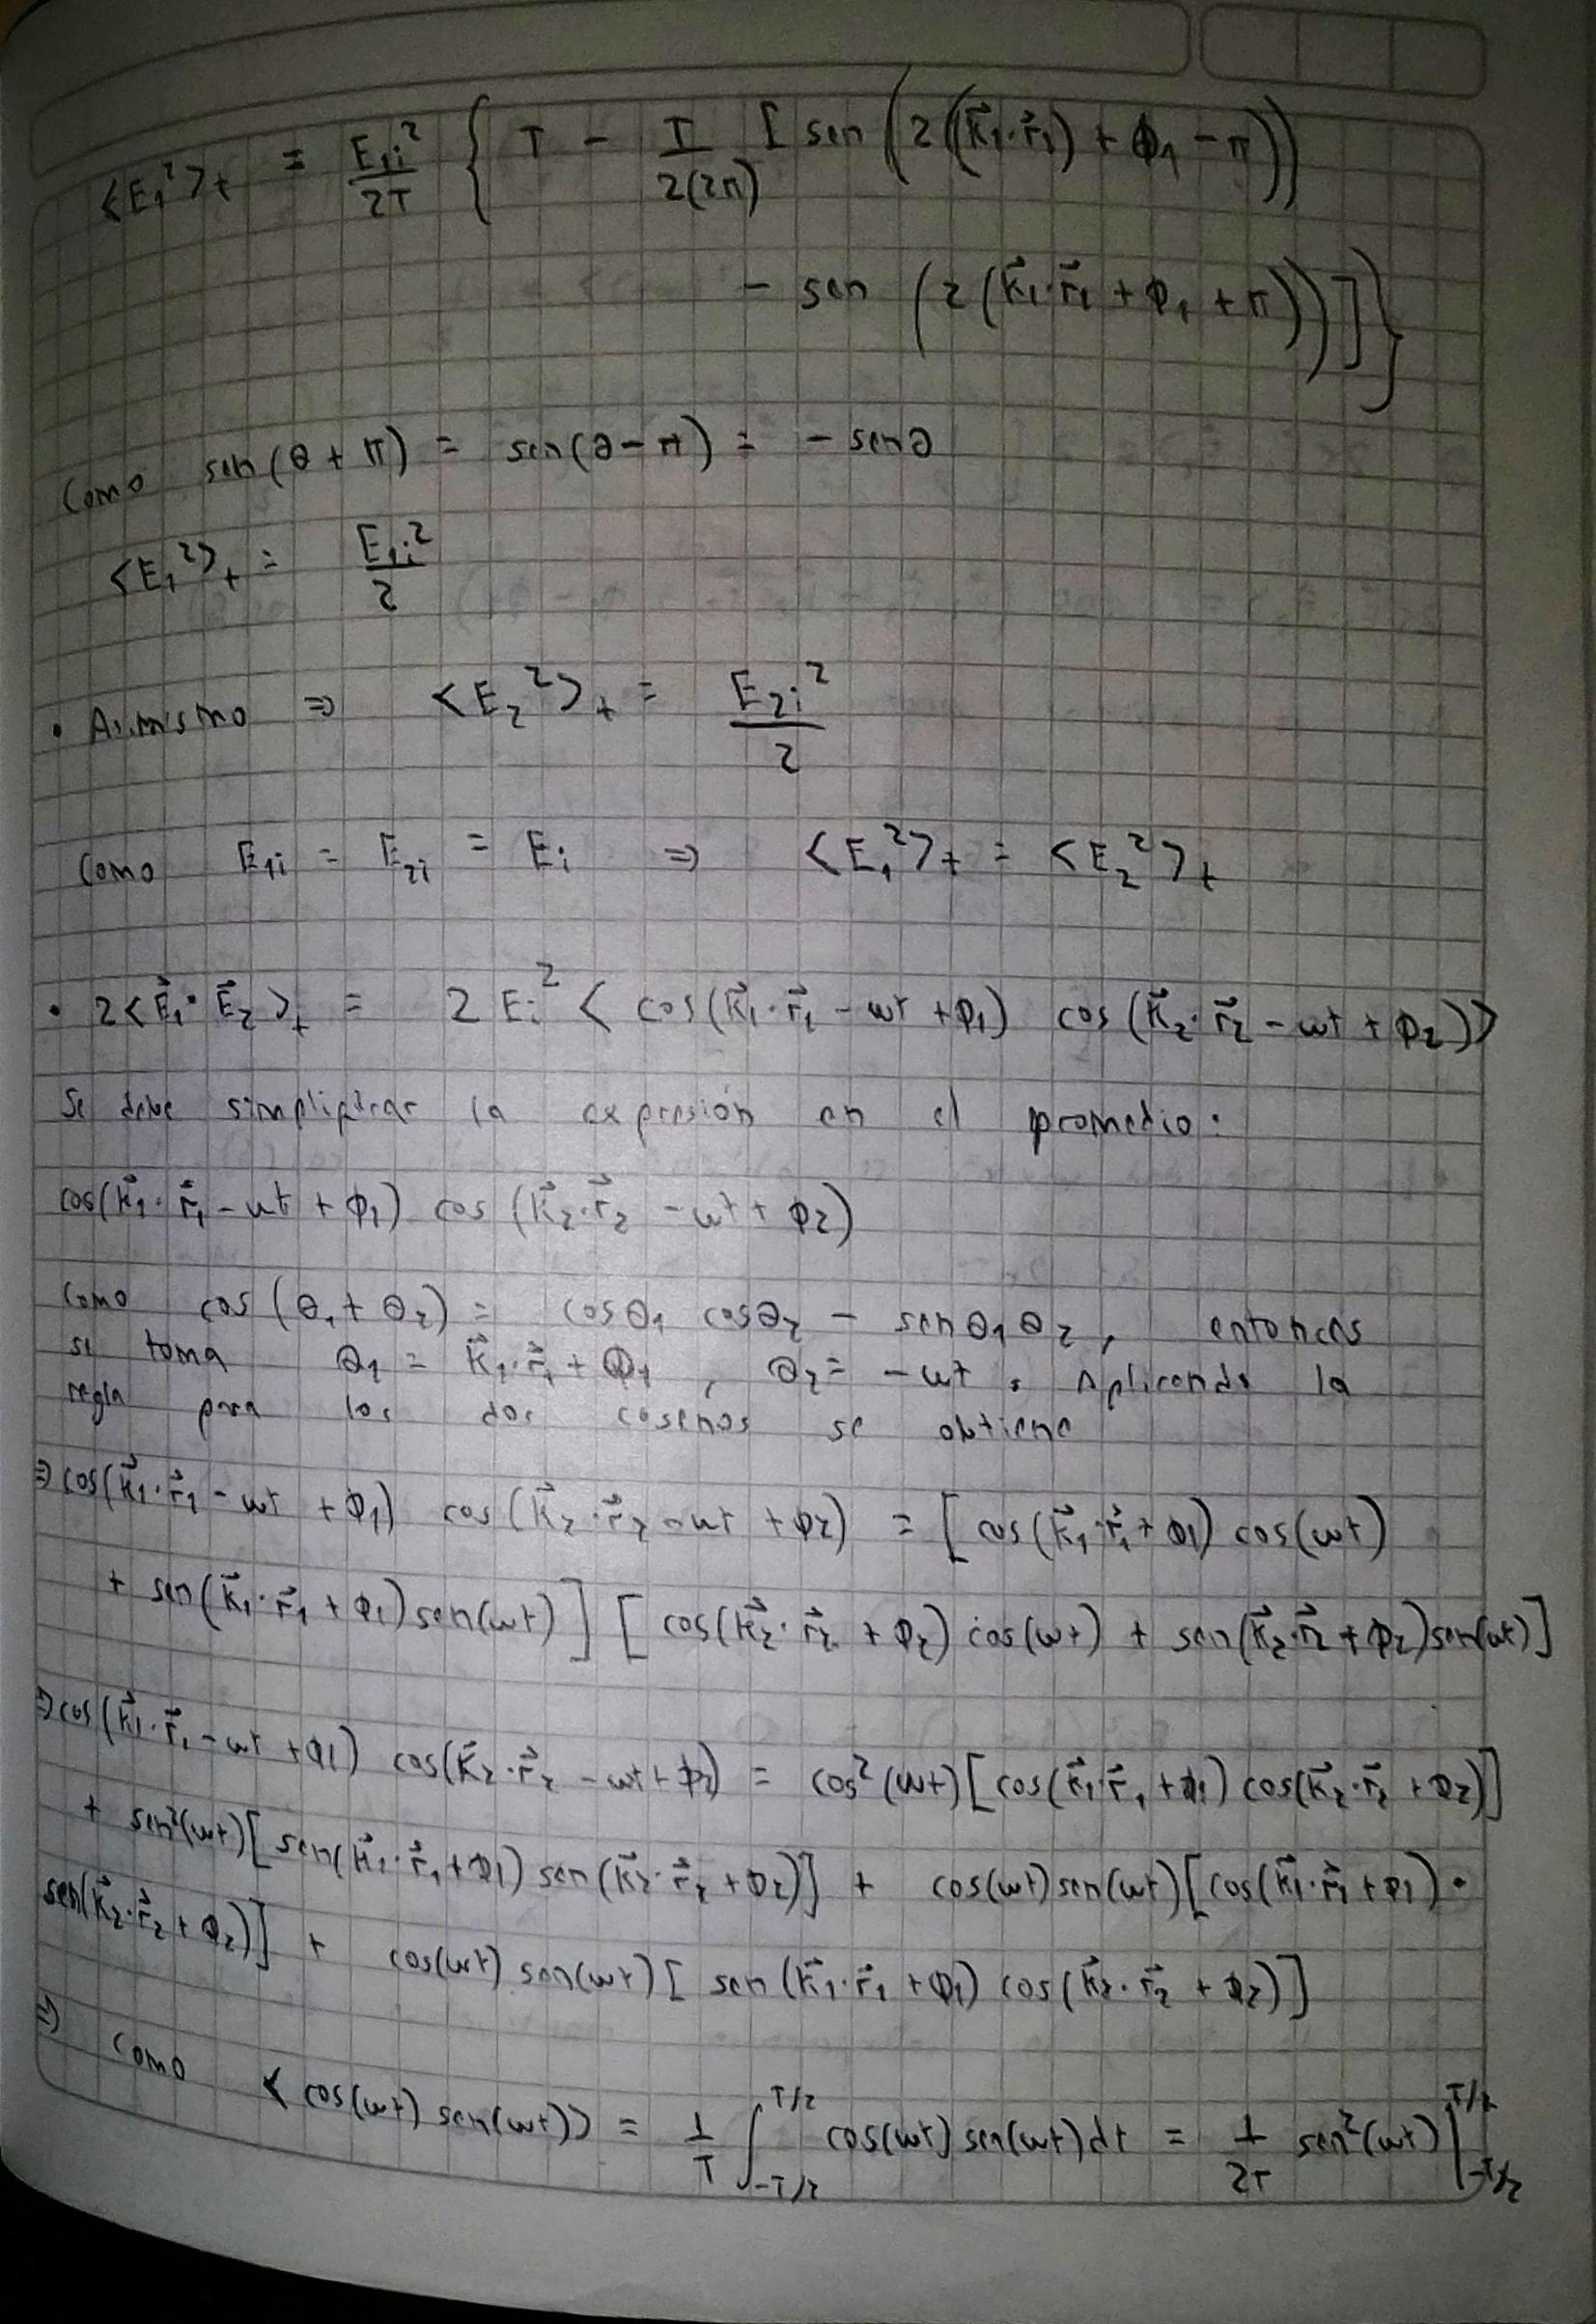 <E₁²>ₜ = E₁ᵢ²/2T { T - T/2(2π) [ sen (2((k⃗₁·r⃗₁) + Φ₁ - π))
- sen (2(k⃗₁·r⃗₁ + Φ₁ + π))]}
Como sen(θ + π) = sen(θ - π) = - senθ
<E₁²>ₜ = E₁ᵢ²/2
• Asimismo ⇒ <E₂²>ₜ = E₂ᵢ²/2
Como E₁ᵢ = E₂ᵢ = Eᵢ ⇒ <E₁²>ₜ = <E₂²>ₜ
• 2<E⃗₁·E⃗₂>ₜ = 2Eᵢ² < cos(k⃗₁·r⃗₁ - ωt + Φ₁) cos(k⃗₂·r⃗₂ - ωt + Φ₂)>
Se debe simplificar la expresión en el promedio:
cos(k⃗₁·r⃗₁ - ωt + Φ₁) cos(k⃗₂·r⃗₂ - ωt + Φ₂)
Como cos(θ₁ + θ₂) = cosθ₁ cosθ₂ - senθ₁θ₂, entonces
se toma θ₁ = k⃗₁·r⃗₁ + Φ₁, θ₂ = -ωt. Aplicando la
regla para los dos cosenos se obtiene
⇒ cos(k⃗₁·r⃗₁ - ωt + Φ₁) cos(k⃗₂·r⃗₂ - ωt + Φ₂) = [cos(k⃗₁·r⃗₁ + Φ₁) cos(ωt)
+ sen(k⃗₁·r⃗₁ + Φ₁) sen(ωt)] [cos(k⃗₂·r⃗₂ + Φ₂) cos(ωt) + sen(k⃗₂·r⃗₂ + Φ₂)sen(ωt)]
⇒ cos(k⃗₁·r⃗₁ - ωt + Φ₁) cos(k⃗₂·r⃗₂ - ωt + Φ₂) = cos²(ωt)[cos(k⃗₁·r⃗₁ + Φ₁) cos(k⃗₂·r⃗₂ + Φ₂)]
+ sen²(ωt)[sen(k⃗₁·r⃗₁ + Φ₁) sen(k⃗₂·r⃗₂ + Φ₂)] + cos(ωt)sen(ωt)[cos(k⃗₁·r⃗₁ + Φ₁)·
sen(k⃗₂·r⃗₂ + Φ₂)] + cos(ωt) sen(ωt)[sen(k⃗₁·r⃗₁ + Φ₁) cos(k⃗₂·r⃗₂ + Φ₂)]
⇒ Como <cos(ωt) sen(ωt)> = 1/T ∫_{-T/2}^{T/2} cos(ωt) sen(ωt)dt = 1/2T sen²(ωt)|_{-T/2}^{T/2}